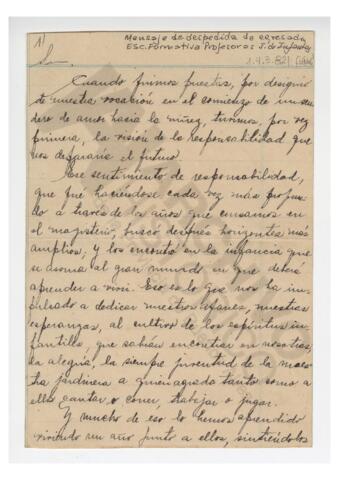 1)
Mensaje de despedida de egresada
Esc. Formativa Profesoras J. de Infantes
1.4.3.82)
Cuando fuimos puestas, por designio
de nuestra vocación en el comienzo de un sen-
dero de amor hacia la niñez, tuvimos, por vez
primera, la visión de la responsabilidad que
nos depararía el futuro.
Ese sentimiento de responsabilidad,
que fué haciéndose cada vez más profun-
do a través de los años que cursamos en
el magisterio, buscó después horizontes más
amplios, y los encontró en la infancia que
se asoma al gran mundo en que deberá
aprender a vivir. Eso es lo que nos ha im-
pulsado a dedicar nuestros afanes, nuestras
esperanzas, al cultivo de los espíritus in-
fantiles, que sabían encontrar en nosotras,
la alegría, la siempre juventud de la maes-
tra jardinera a quien agrada tanto como a
ellos cantar o correr, trabajar o jugar.
Y mucho de eso lo hemos aprendido
viviendo un año junto a ellos, sintiéndolos